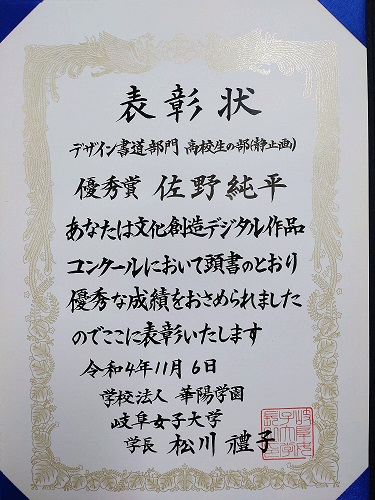 表彰状
デザイン書道部門 高校生の部(静止画)
優秀賞 佐野純平
あなたは文化創造デジタル作品
コンクールにおいて頭書のとおり
優秀な成績をおさめられました
のでここに表彰いたします
令和4年11月6日
学校法人 華陽学園
岐阜女子大学
学長 松川禮子